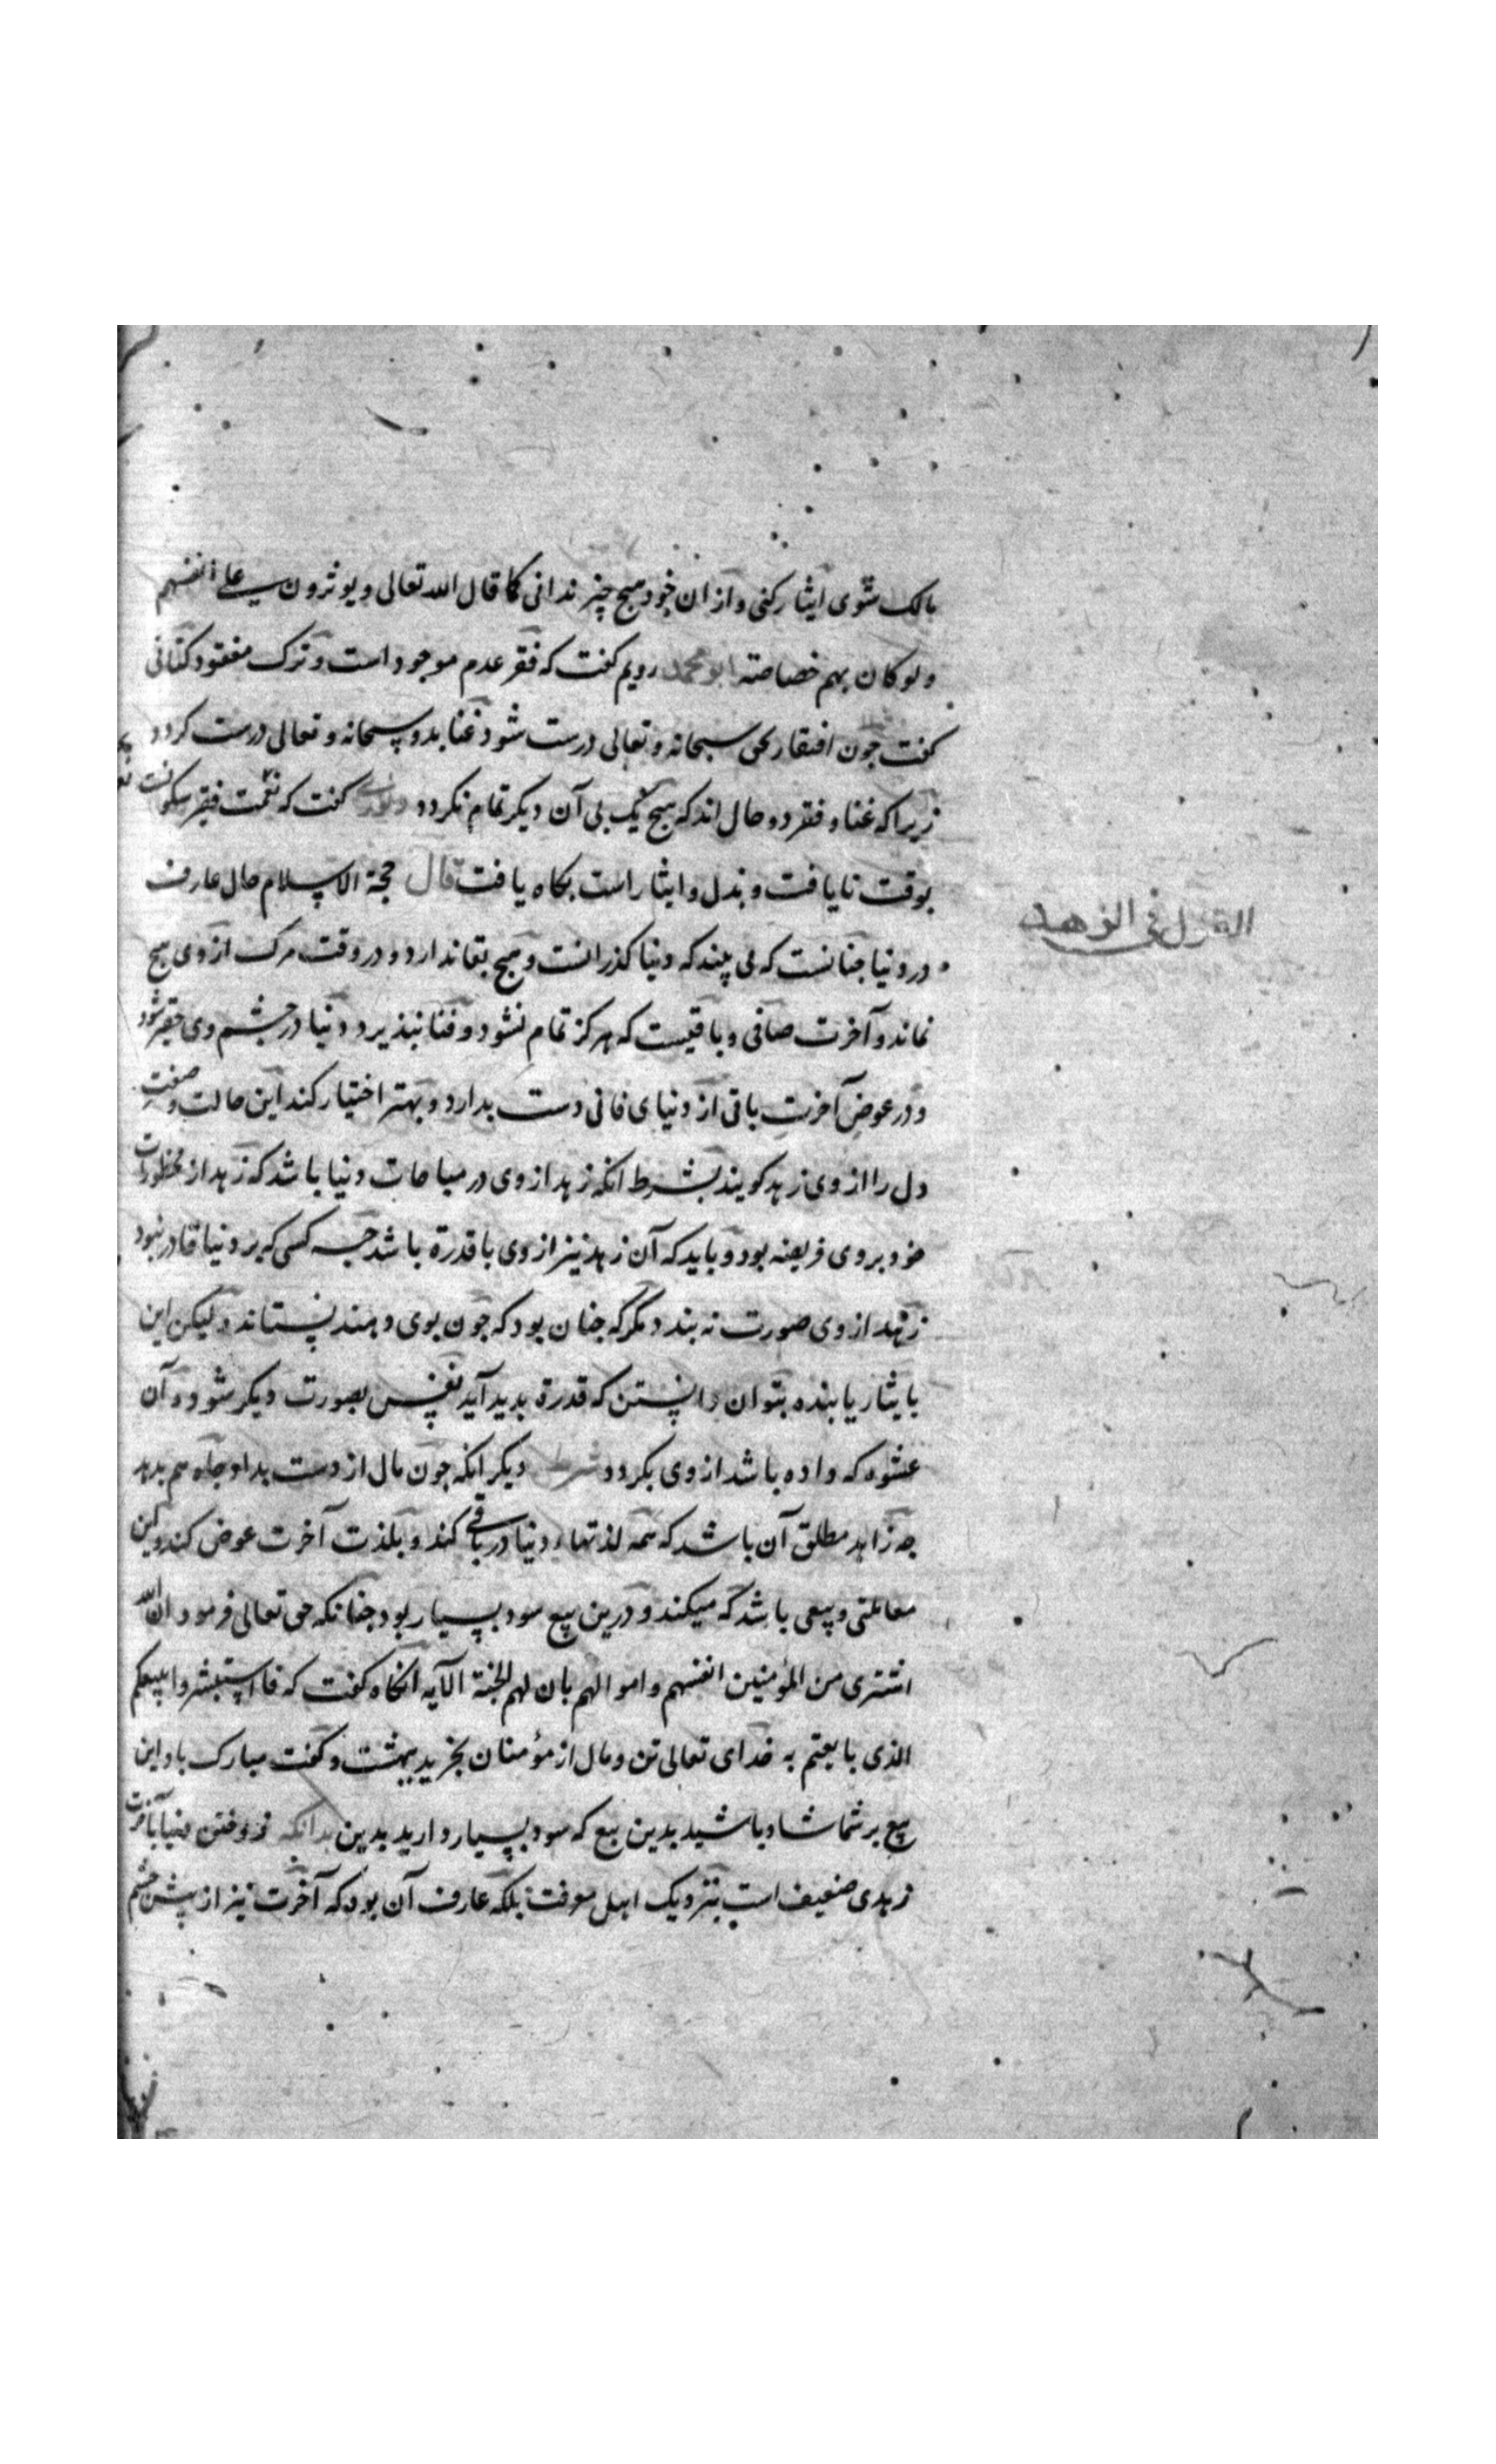 مالک شوی ایثار کنی و از ان خود هیچ چیز ندانی کما قال الله تعالی و یوثرون علی انفسهم
ولو کان بهم خصاصة ابو محمد رویم کفت که فقر عدم موجود است و ترک مفقود کتانی
کفت جون افتقار بحق سبحانه و تعالی درست شود غنا بدو سبحانه و تعالی درست کردد
زیرا که غنا و فقر دو حال اند که هیچ یک بی آن دیکر تمام نکردد کفت که نعمت فقیر سکونت
بوقت نایافت و بذل و ایثار است بکاه یافت قال حجة الاسلام حال عارف
القول فی الزهد
در دنیا جنانست که می بیند که دنیا کذرانست و هیچ بقا ندارد و در وقت مرک از وی هیچ
نماند و آخرت صافی و باقیست که هرکز تمام نشود و فنا نپذیرد دنیا در جشم وی حقیر شود
و در عوض آخرت باقی از دنیای فانی دست بدارد و بهتر اختیار کند این حالت و صفت
دل را از وی زهد کویند بشرط آنکه زهد از وی در مباحات دنیا باشد که زهد از محظورات
خود بر وی فریضه بود و باید که آن زهد نیز از وی با قدرة باشد جه کسی که بر دنیا قادر نبود
زهد از وی صورت نه بندد مکر که جنان بود که جون بوی دهند نستاند و لیکن این
بایثار یابنده بتوان دانستن که قدرة بدید آید نفس بصورت دیکر شود و آن
عشوه که داده باشد از وی بکردد شرط دیکر انکه جون مال از دست بداد جاه هم بدهد
جه زاهد مطلق آن باشد که همه لذتهاء دنیا در باقی کند و بلذت آخرت عوض کند و این
معاملتی و بیعی باشد که میکند و درین بیع سود بسیار بود جنانکه حق تعالی فرمود ان الله
اشتری من المؤمنین انفسهم و اموالهم بان لهم الجنة الآیه انکاه کفت که فاستبشروا ببیعکم
الذی بایعتم به خدای تعالی تن و مال از مؤمنان بخرید ببهشت و کفت مبارک باد این
بیع بر شما شاد باشید بدین بیع که سود بسیار دارید بدین بدانکه فروختن دنیا بآخرت
زهدی ضعیف است بنزدیک اهل معرفت بلکه عارف آن بود که آخرت نیز از پیش جشم